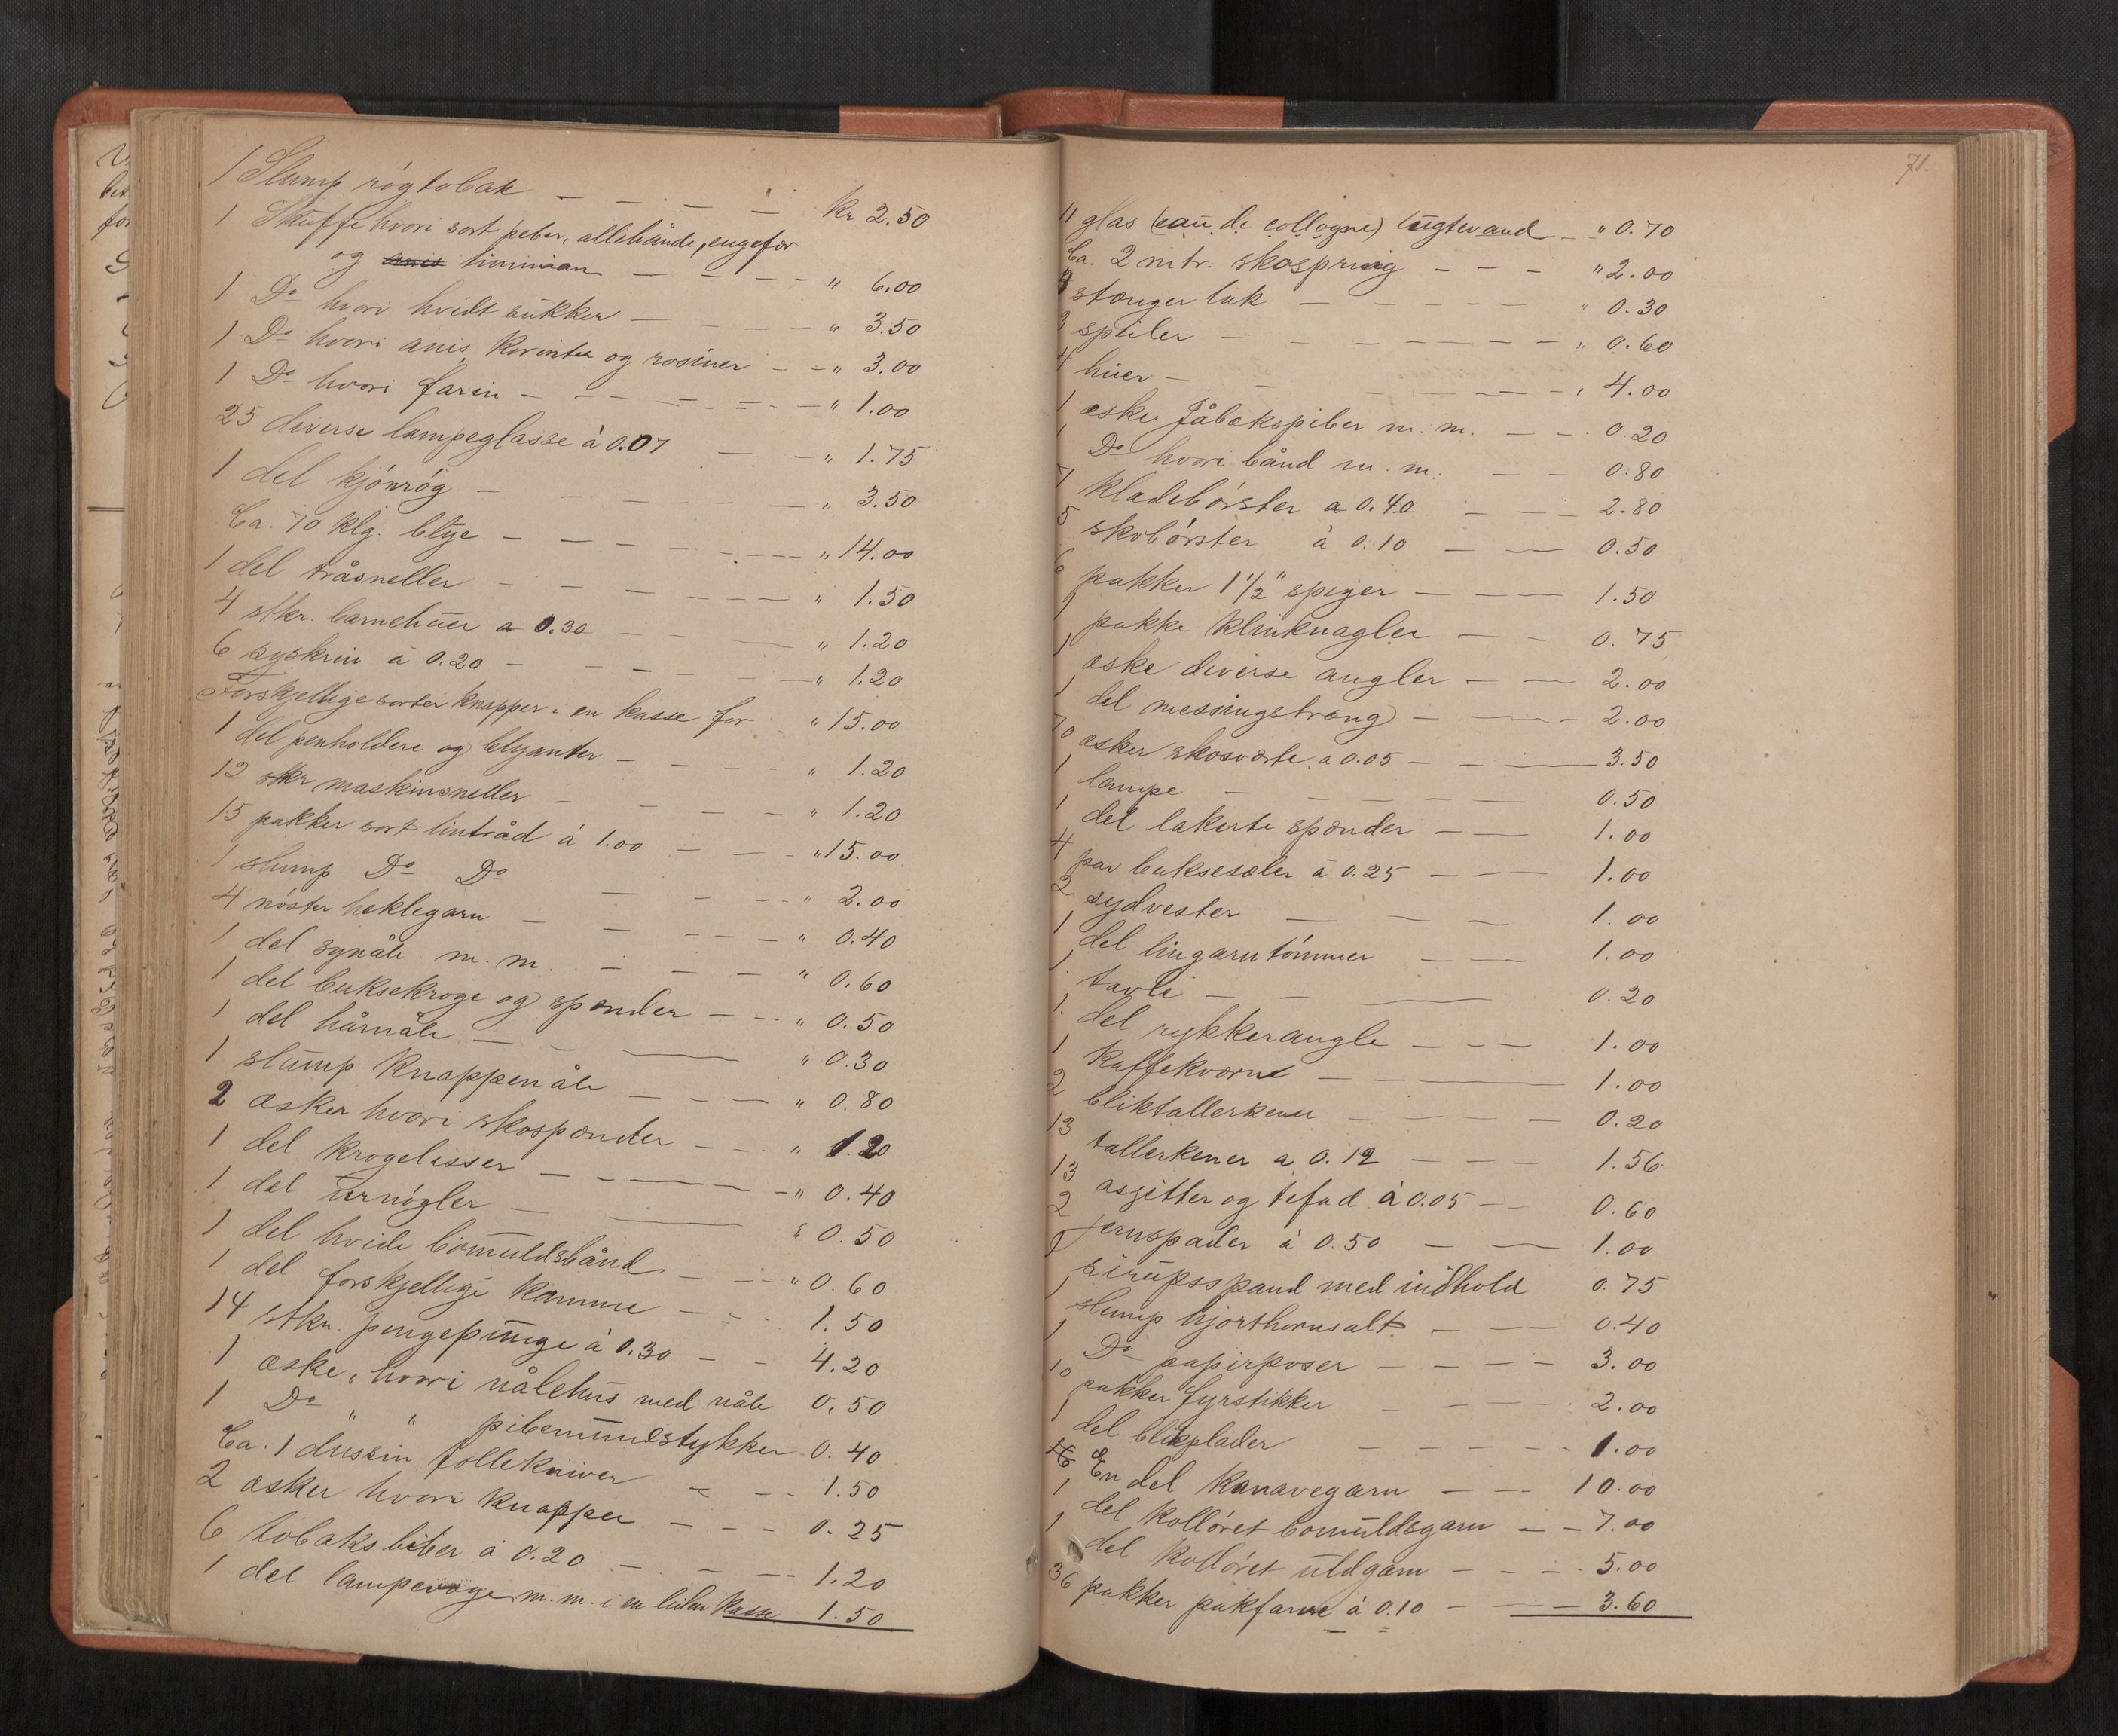 1 Slump røgtobak — — — — kr 2.50
1 Skuffe hvori sort peber, allehånde, engefær
og anis timmian — — — — " 6.00
1 Do hvori hvidt sukker — — — — " 3.50
1 Do hvori anis, Korinter og rosiner — — " 3.00
1 Do hvori farin — — — — — " 1.00
25 diverse lampeglasse à 0.07 — — " 1.75
1 del kjønrøg — — — — — " 3.50
Ca. 70 klg. blye — — — — — " 14.00
1 del tråsneller — — — — — " 1.50
4 stkr. barnehuer a 0.30 — — — " 1.20
6 syskrin à 0.20 — — — — — " 1.20
Forskjellige sorter knapper i en kasse for " 15.00
1 del penholdere og blyanter — — — — " 1.20
12 stkr maskinsneller — — — — " 1.20
15 pakker sort lintråd à 1.00 — — — " 15.00
1 slump Do Do — — — — " 2.00
4 nøster heklegarn — — — — — " 0.40
1 del synåle m.m. — — — — " 0.60
1 del buksekroge og spænder — — — " 0.50
1 del hårnåle — — — — " 0.30
1 slump Knappenåle — — — — " 0.80
2 æsker hvori skospænder — — — " 1.20
1 del krogelisser — — — — — " 0.40
1 del urnøgler — — — " 0.50
1 del hvide bomuldsbånd — — — " 0.60
1 del forskjellige kamme — — 1.50
14 stkr. pengepunge à 0.30 — — 4.20
1 æske, hvori nålehus med nåle 0.50
1 Do " " pibemundstykker 0.40
Ca. 1 dusin follekniver — — — 1.50
2 æsker hvori knapper — — — 0.25
6 tobaksbiter à 0.20 — — — — 1.20
1 del lampevæge m.m. i en liden kasse 1.50
71.
11 glas (eau de collogne) lugtevand — " 0.70
Ca. 2 mtr. skospring — — — " 2.00
stænger lak — — — — — " 0.30
3 speiler — — — — — — " 0.60
4 huer — — — — " 4.00
1 æske Jåbækspiber m.m. — — 0.20
1 Do hvori bånd m.m. — — 0.80
7 klædebørster a 0.40 — — — 2.80
5 skobørster à 0.10 — — 0.50
6 pakker 1 1/2" spiger — — — 1.50
1 pakke klinknagler — — 0.75
1 æske diverse angler — — 2.00
1 del messingstræng — — — 2.00
70 æsker skosværte a 0.05 — — — 3.50
1 lampe — — — — — 0.50
1 del lakerte spænder — — 1.00
4 par buksesæler à 0.25 — — — 1.00
2 sydvester — — — 1.00
1 del lingarntømmer — — 1.00
1 tavle — — — 0.20
1 del rykkerangle — — — 1.00
1 Kaffekværne — — 1.00
2 bliktallerkener — — — — 0.20
13 tallerkener a 0.12 — — — 1.56
13 asjetter og tefad à 0.05 — — 0.60
2 jernspader à 0.50 — — 1.00
1 sirupsspand med indhold 0.75
1 slump hjorthornsalt — — 0.40
1 Do papirposer — — — — 3.00
10 pakker fyrstikker — — — 2.00
1 del blikplader — — — — 1.00
En del kanavegarn — — 10.00
1 del kolløret bomuldsgarn — — 7.00
1 del kolløret uldgarn — — — 5.00
36 pakker pakfarve à 0.10 — — 3.60